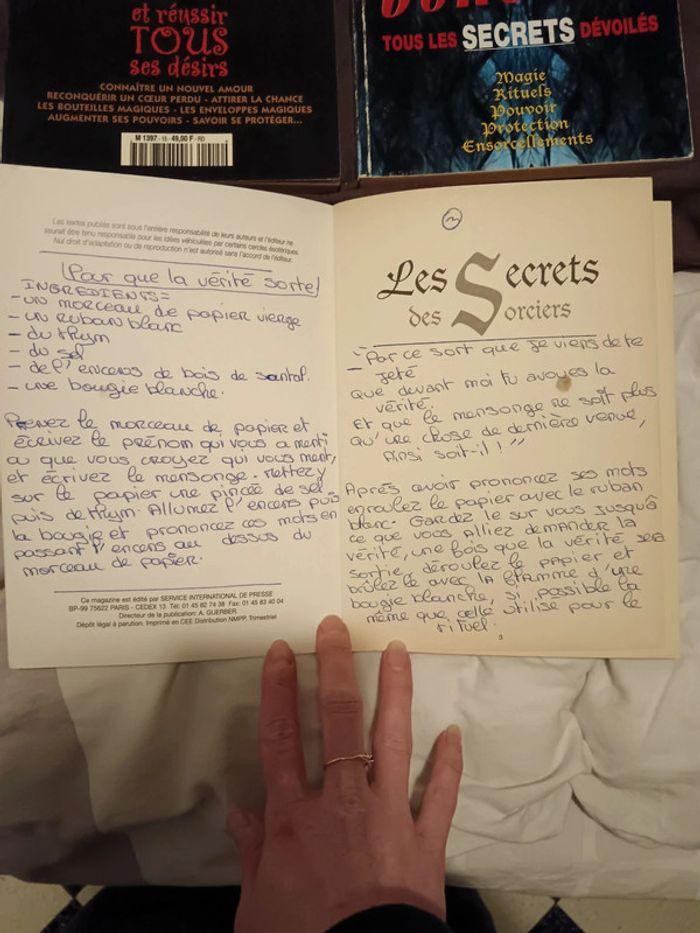 et réussir
TOUS
ses désirs
CONNAÎTRE UN NOUVEL AMOUR
RECONQUÉRIR UN CŒUR PERDU - ATTIRER LA CHANCE
LES BOUTEILLES MAGIQUES - LES ENVELOPPES MAGIQUES
AUGMENTER SES POUVOIRS - SAVOIR SE PROTÉGER...
M 1397 - 15 - 49,00 F - RD
TOUS LES SECRETS DÉVOILÉS
Magie
Rituels
Pouvoir
Protection
Ensorcellements
Les textes publiés sont sous l'entière responsabilité de leurs auteurs et l'éditeur ne
saurait être tenu responsable pour les idées véhiculées par certains cercles ésotériques
Nul droit d'adaptation ou de reproduction n'est autorisé sans l'accord de l'éditeur.
(Pour que la vérité sorte)
INGREDIENTS =
- un morceau de papier vierge
- un ruban blanc
- du thym
- du sel
- de l'encens de bois de santal.
- une bougie blanche.
Prenez le morceau de papier et
écrivez le prénom qui vous a menti
ou que vous croyez qui vous ment,
et écrivez le mensonge. Mettez
sur le papier une pincée de sel
puis de thym. Allumez l'encens puis
la bougie et prononcez ces mots en
passant l'encens au dessus du
morceau de papier.
Ce magazine est édité par SERVICE INTERNATIONAL DE PRESSE
BP-99 75622 PARIS - CEDEX 13 Tél: 01 45 82 74 38 Fax: 01 45 83 40 04
Directeur de la publication: A. GUERBER.
Dépôt légal à parution. Imprimé en CEE Distribution NMPP, Trimestriel
Les Secrets
des Sorciers
- "Par ce sort que je viens de te
jeté
que devant moi tu avoues la
vérité.
Et que le mensonge ne soit plus
qu'une chose de dernière venue,
Ainsi soit-il!"
Après avoir prononcez ses mots
enroulez le papier avec le ruban
blanc. Gardez le sur vous jusqu'à
ce que vous alliez demander la
vérité, une fois que la vérité sera
sortie, déroulez le papier et
brûlez le avec la flamme d'une
bougie blanche, si possible la
même que celle utilisé pour le
rituel.
3